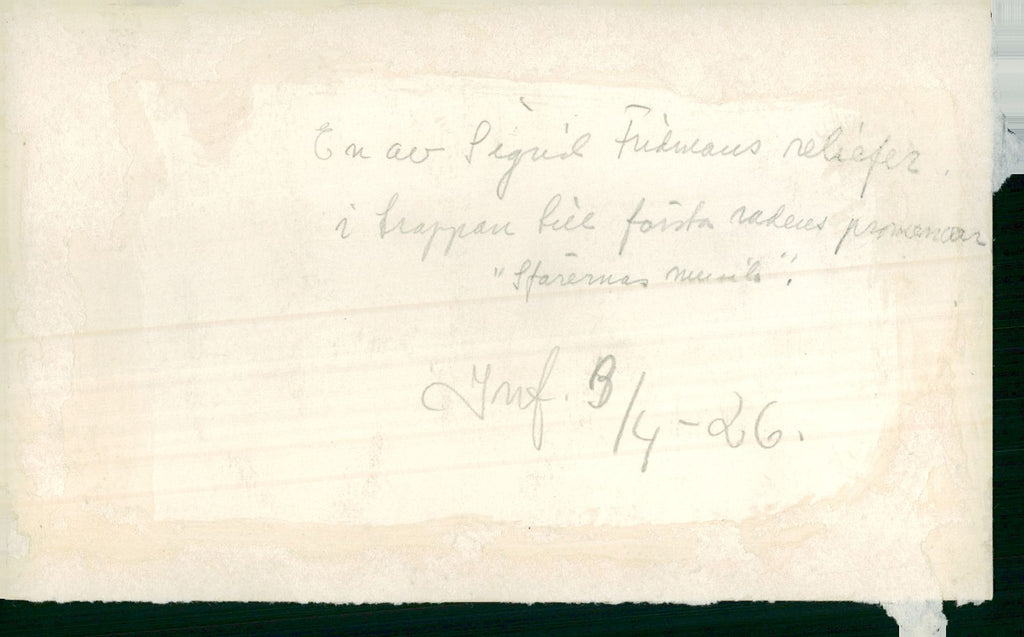 En av Sigrid Fridmans reliefer
i trappan till första radens promenoar
"Sfärernas musik".
Inf. 3/4-26.